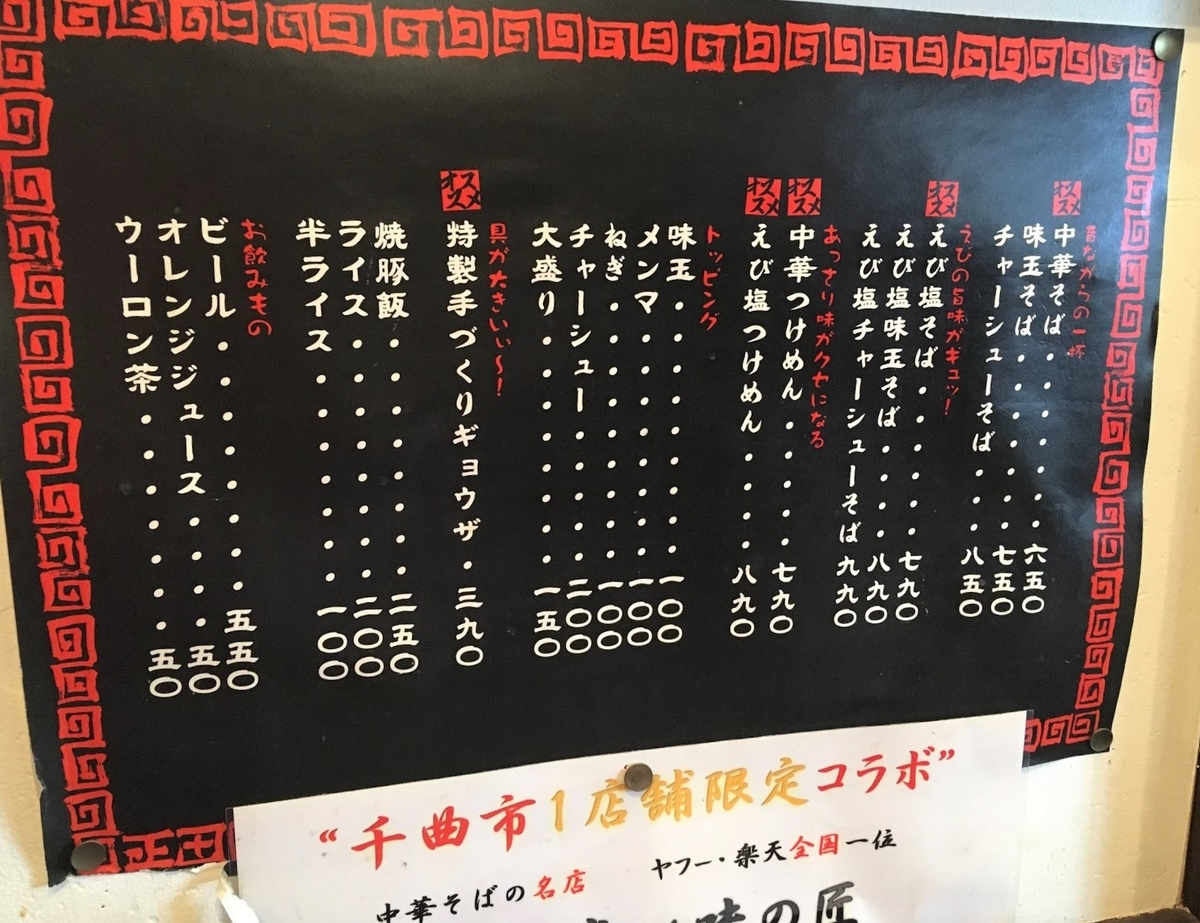 昔ながらの一杯
オススメ 中華そば・・・・・・六五〇
味玉そば・・・・・・七五〇
チャーシューそば・・・八五〇
えびの旨味がギュッ！
オススメ えび塩そば・・・・・七九〇
えび塩味玉そば・・・・八九〇
えび塩チャーシューそば九九〇
あっさり味がクセになる
オススメ 中華つけめん・・・・・七九〇
オススメ えび塩つけめん・・・・八九〇
トッピング
味玉・・・・・・・・一〇〇
メンマ・・・・・・・一〇〇
ねぎ・・・・・・・・一〇〇
チャーシュー・・・・・二〇〇
大盛り・・・・・・・一五〇
具が大きいぃ〜！
オススメ 特製手づくりギョウザ・三九〇
焼豚飯・・・・・・・二五〇
ライス・・・・・・・二〇〇
半ライス・・・・・・・一〇〇
お飲みもの
ビール・・・・・・・・五五〇
オレンジジュース・・・・五〇
ウーロン茶・・・・・・・五〇
“千曲市1店舗限定コラボ”
ヤフー・楽天全国一位
中華そばの名店
味の匠